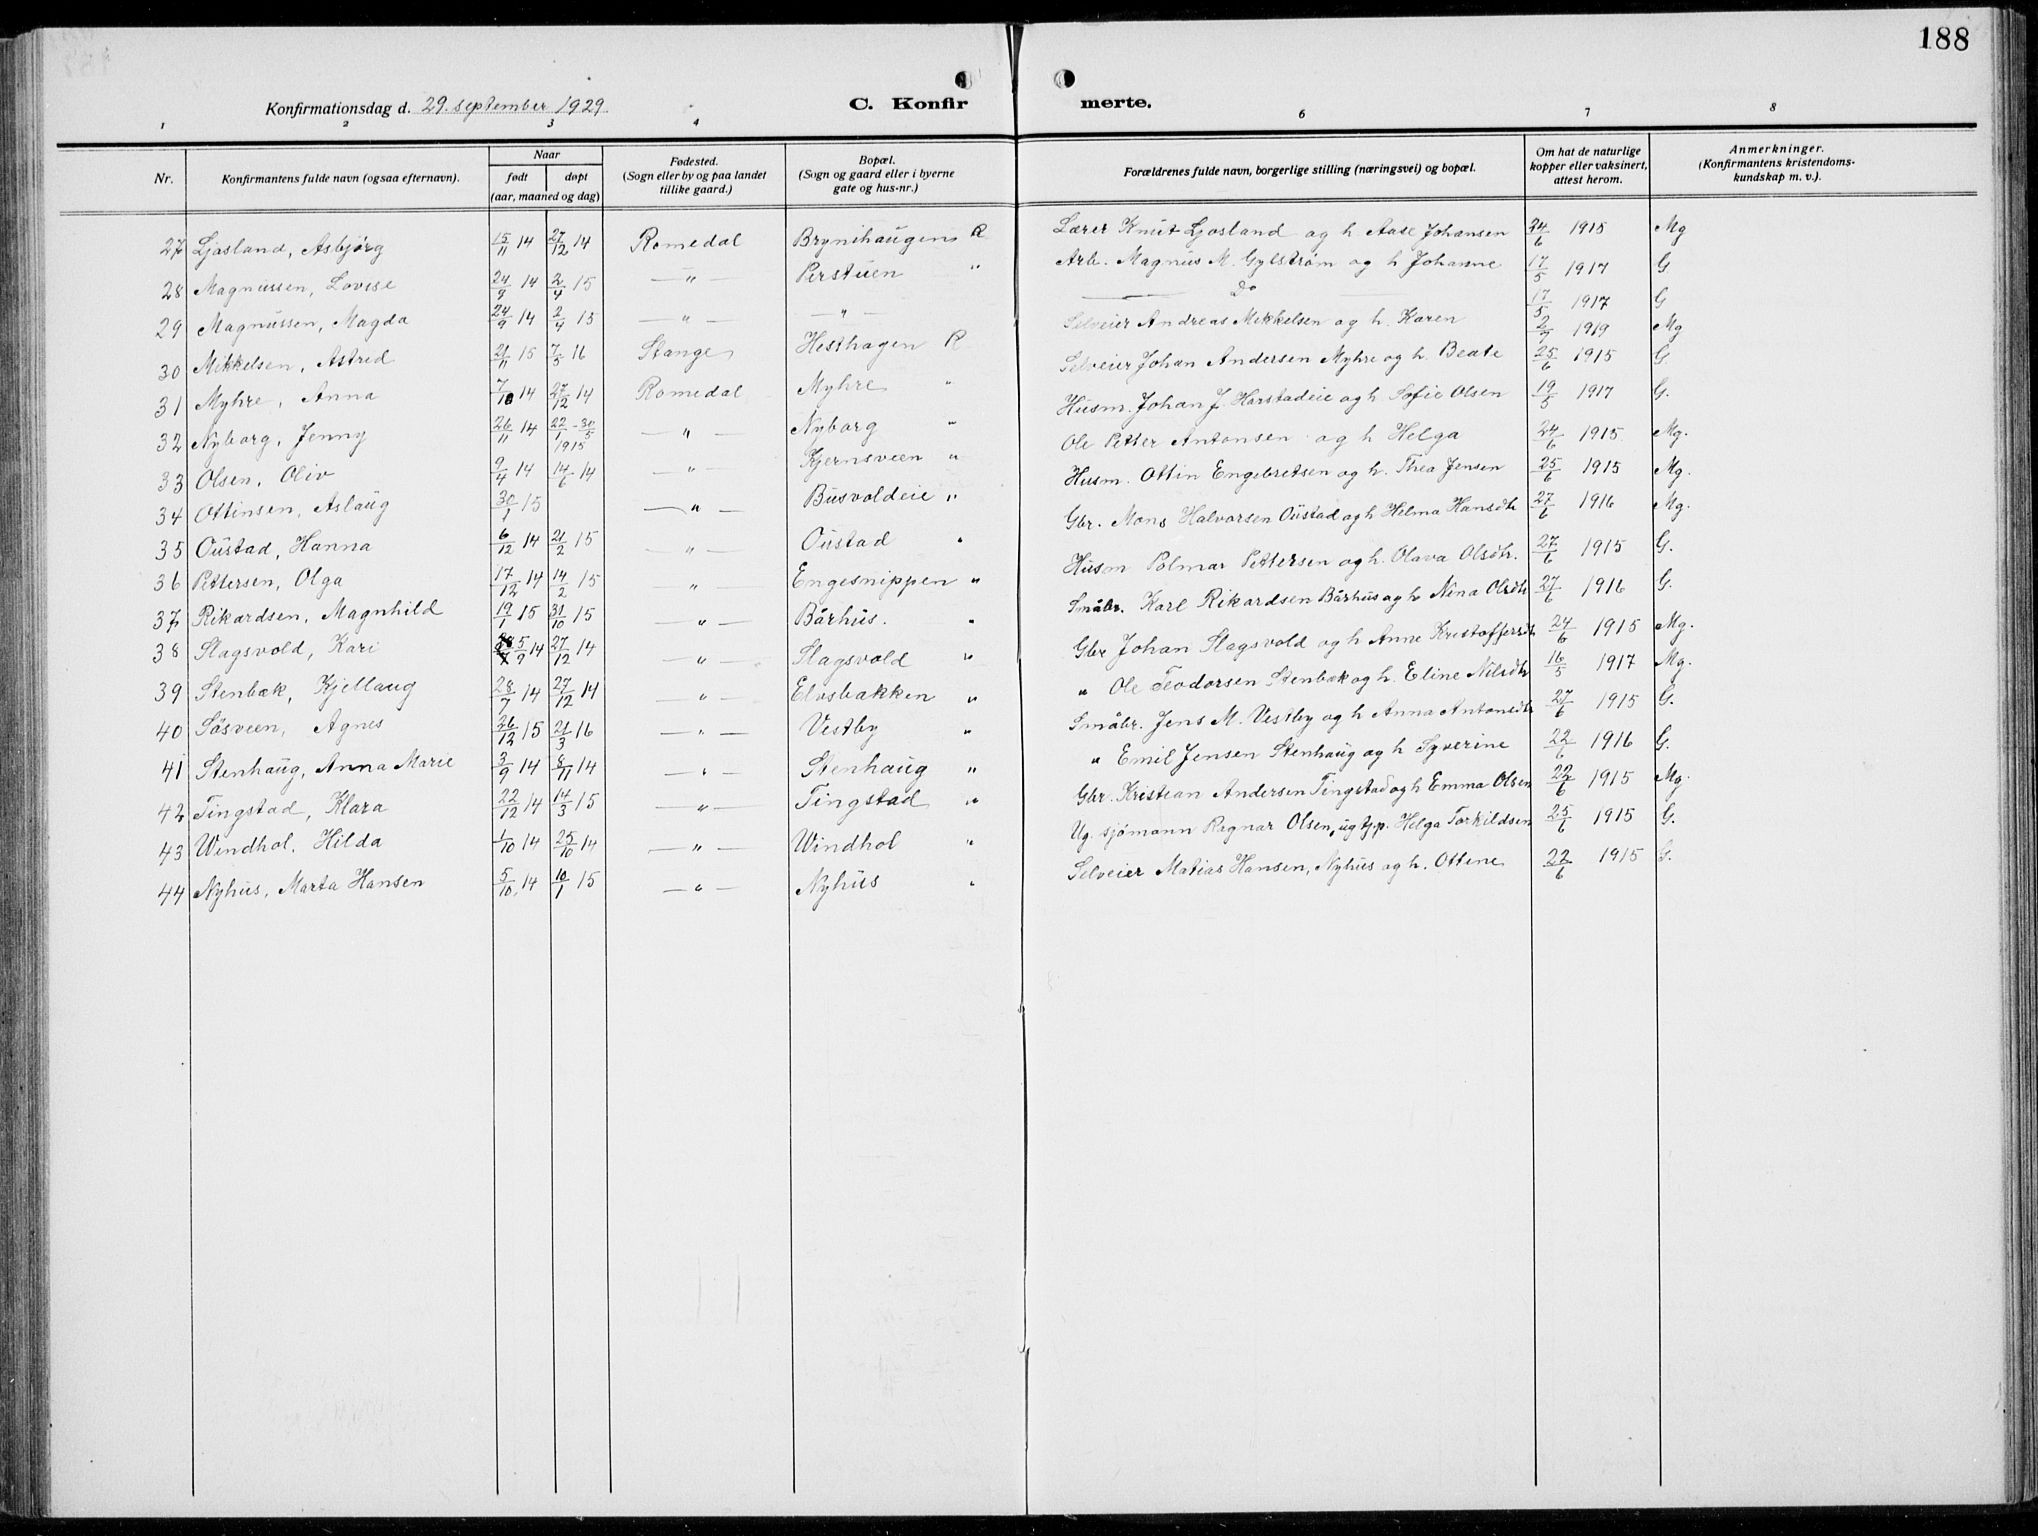 188
Konfirmationsdag d. 29. september 1929. C. Konfirmerte.
1 2 3 4 6 7 8
Nr. Konfirmantens fulde navn (ogsaa efternavn). Naar født døpt (aar, maaned og dag) Fødested. (Sogn eller by og paa landet tillike gaard.) Bopæl. (Sogn og gaard eller i byerne gate og hus-nr.) Forældrenes fulde navn, borgerlige stilling (næringsvei) og bopæl. Om hat de naturlige kopper eller vaksinert, attest herom. Anmerkninger. (Konfirmantens kristendoms-kundskap m. v.).
27 Ljosland, Asbjørg 15/11 14 27/12 14 Romedal Brynihaugen R Lærer Knut Ljosland og h Aase Johansen 24/6 1915 Mg
28 Magnussen, Lovise 24/9 14 2/4 15 — " — Perstuen " Arb. Magnus M. Gylstrøm og h Johanne 17/5 1917 G
29 Magnussen, Magda 24/9 14 2/4 15 — " — — " — Do 17/5 1917 G
30 Mikkelsen, Astrid 21/11 15 7/5 16 Stange Hesthagen R Selveier Andreas Mikkelsen og h. Karen 2/7 1919 Mg
31 Myhre, Anna 7/10 14 27/12 14 Romedal Myhre " Selveier Johan Andersen Myhre og h. Beate 25/6 1915 G
32 Nyborg, Jenny 26/11 14 22/1 - 30/5 1915 — " — Nyborg " Husm. Johan J. Harstadeie og h Sofie Olsen 19/5 1917 G.
33 Olsen, Oliv 9/4 14 14/6 14 — " — Kjernsveen " Ole Petter Antonsen og h Helga 24/6 1915 Mg.
34 Ottinsen, Aslaug 30/1 15 — " — Busvoldeie " Husm. Ottin Engebretsen og h. Thea Jensen 25/6 1915 Mg.
35 Oustad, Hanna 6/12 14 21/2 15 — " — Oustad " Gbr. Mons Halvorsen Oustad og h Helma Hansdtr 27/6 1916 Mg.
36 Pettersen, Olga 17/12 14 14/2 15 — " — Engesnippen " Husm Polmar Pettersen og h. Olava Olsdtr. 27/6 1915 G.
37 Rikardsen, Magnhild 19/1 15 31/10 15 — " — Bårhus. " Småbr. Karl Rikardsen Bårhus og h Nina Olsdtr 27/6 1916 G.
38 Slagsvold, Kari 5/9 14 27/12 14 — " — Slagsvold " Gbr Johan Slagsvold og h Anne Kristoffersdtr 24/6 1915 Mg.
39 Stenbæk, Kjellaug 28/7 14 27/12 14 — " — Elvsbakken " " Ole Teodorsen Stenbæk og h. Eline Nilsdtr 16/5 1917 Mg.
40 Søsveen, Agnes 26/12 15 21/3 16 — " — Vestby " Småbr. Jens M. Vestby og h Anna Antonsdtr 27/6 1915 G.
41 Stenhaug, Anna Marie 3/9 14 8/11 14 — " — Stenhaug " " Emil Jensen Stenhaug og h Syverine 22/6 1916 G.
42 Tingstad, Klara 22/12 14 14/3 15 — " — Tingstad " Gbr. Kristian Andersen Tingstad og h Emma Olsen 22/6 1915 Mg.
43 Windhol. Hilda 1/10 14 25/10 14 — " — Windhol " Ug. sjømann Ragnar Olsen, ug tj.p. Helga Torkildsen 25/6 1915 G.
44 Nyhus, Marta Hansen 5/10 14 10/1 15 — " — Nyhus " Selveier Matias Hansen, Nyhus og h. Ottine 22/6 1915 G.